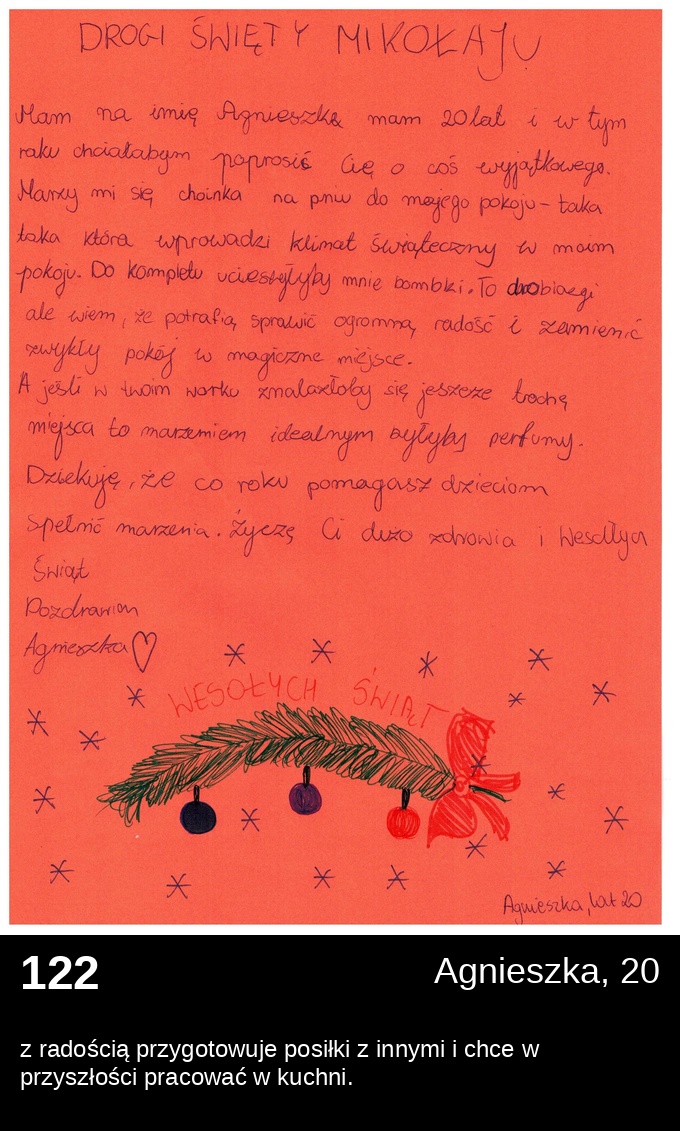 DROGI ŚWIĘTY MIKOŁAJU
Mam na imię Agnieszka mam 20 lat i w tym
roku chciałabym poprosić Cię o coś wyjątkowego.
Marzy mi się choinka na pniu do mojego pokoju - taka
taka która wprowadzi klimat świąteczny w moim
pokoju. Do kompletu ucieszyłyby mnie bombki. To drobiazgi
ale wiem, że potrafią sprawić ogromną radość i zamienić
zwykły pokój w magiczne miejsce.
A jeśli w twoim worku znalazłoby się jeszcze trochę
miejsca to marzeniem idealnym byłyby perfumy.
Dziękuję, że co roku pomagasz dzieciom
Spełnić marzenia. Życzę Ci dużo zdrowia i Wesołych
Świąt
Pozdrawiam
Agnieszka
WESOŁYCH ŚWIĄT
Agnieszka, lat 20
122
Agnieszka, 20
z radością przygotowuje posiłki z innymi i chce w
przyszłości pracować w kuchni.